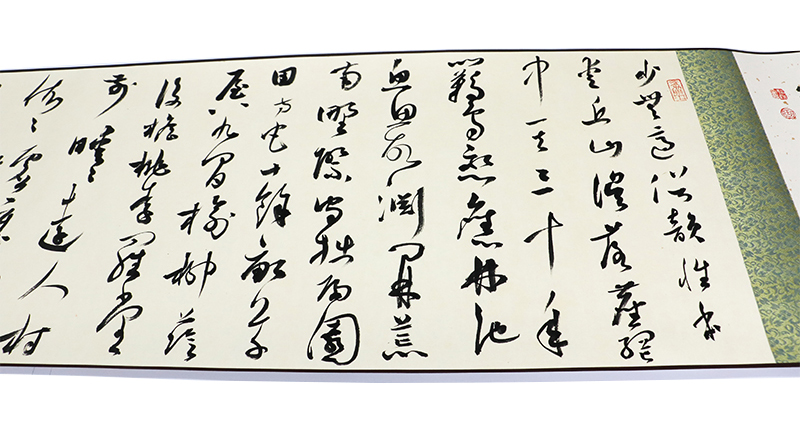 少無適俗韻性本
愛丘山誤落塵網
中一去三十年
羈鳥戀舊林池
魚思故淵開荒
南野際守拙歸園
田方宅十餘畝草
屋八九間榆柳蔭
後檐桃李羅堂
前曖〻遠人村
依〻墟里